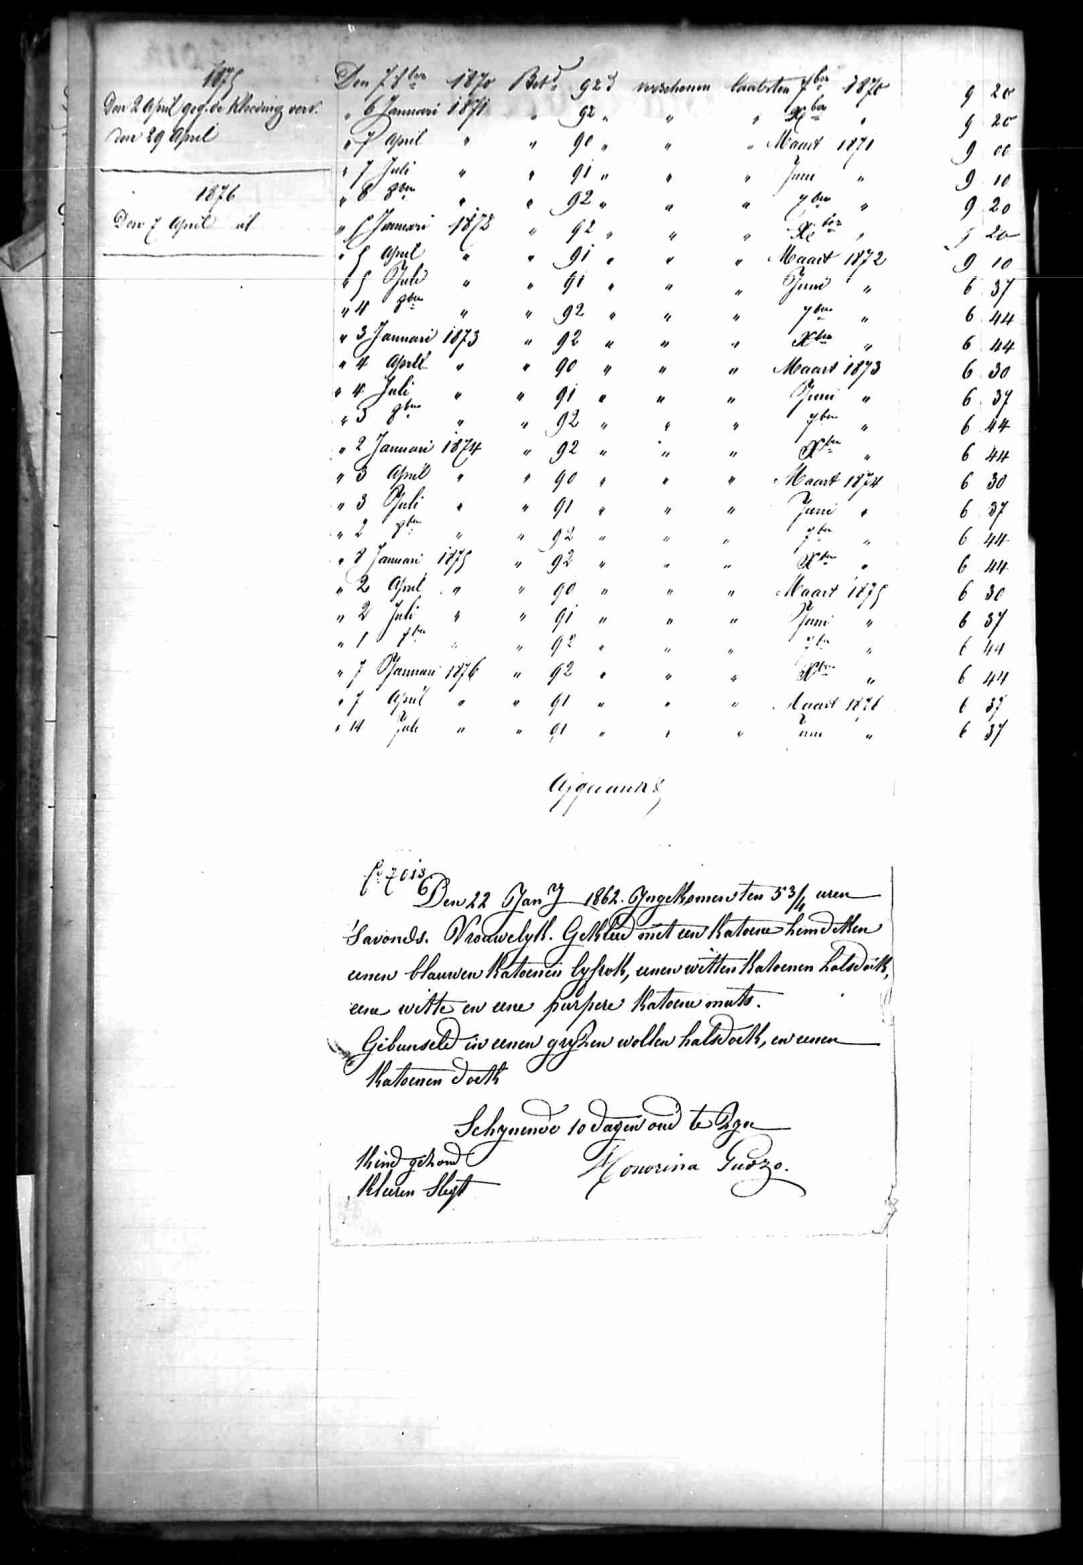 1875
Den 2 April geg. de kleeding verv.
Den 29 April
1876
Den 7 April
Den 7 8ber 1870 Betd 92d verschenen laatsten 7ber 1870 9 20
" 6 Januari 1871 " 92 " " " Xber " 9 20
" 7 April " " 90 " " " Maart 1871 9 00
" 7 Juli " " 91 " " " Juni " 9 10
" 8 8ber " " 92 " " " 7ber " 9 20
" 5 Januari 1872 " 92 " " " Xber " 9 20
" 5 April " " 91 " " " Maart 1872 9 10
" 5 Juli " " 91 " " " Juni " 6 37
" 4 8ber " " 92 " " " 7ber " 6 44
" 3 Januari 1873 " 92 " " " Xber " 6 44
" 4 April " " 90 " " " Maart 1873 6 30
" 4 Juli " " 91 " " " Juni " 6 37
" 3 8ber " " 92 " " " 7ber " 6 44
" 2 Januari 1874 " 92 " " " Xber " 6 44
" 3 April " " 90 " " " Maart 1874 6 30
" 3 Juli " " 91 " " " Juni " 6 37
" 2 8ber " " 92 " " " 7ber " 6 44
" 8 Januari 1875 " 92 " " " Xber " 6 44
" 2 April " " 90 " " " Maart 1875 6 30
" 2 Juli " " 91 " " " Juni " 6 37
" 1 8ber " " 92 " " " 7ber " 6 44
" 7 Januari 1876 " 92 " " " Xber " 6 44
" 7 April " " 91 " " " Maart 1876 6 37
" 14 Juli " " 91 " " " Juni " 6 37
Den 22 Jany 1862. Ingekomen ten 5 3/4 uren
's avonds. Vrouwelyk. Gekleed met een katoene hemdeken
eenen blauwen katoenen lyfrok, eenen witten katoenen halsdoek,
eene witte en eene purpere katoene muts.
Gebunseld in eenen gryzen wollen halsdoek, en eenen
katoenen doek
Schynende 10 dagen oud te zyn
Kind gezond
Honorina Gudzo.
Kleeren Slegt